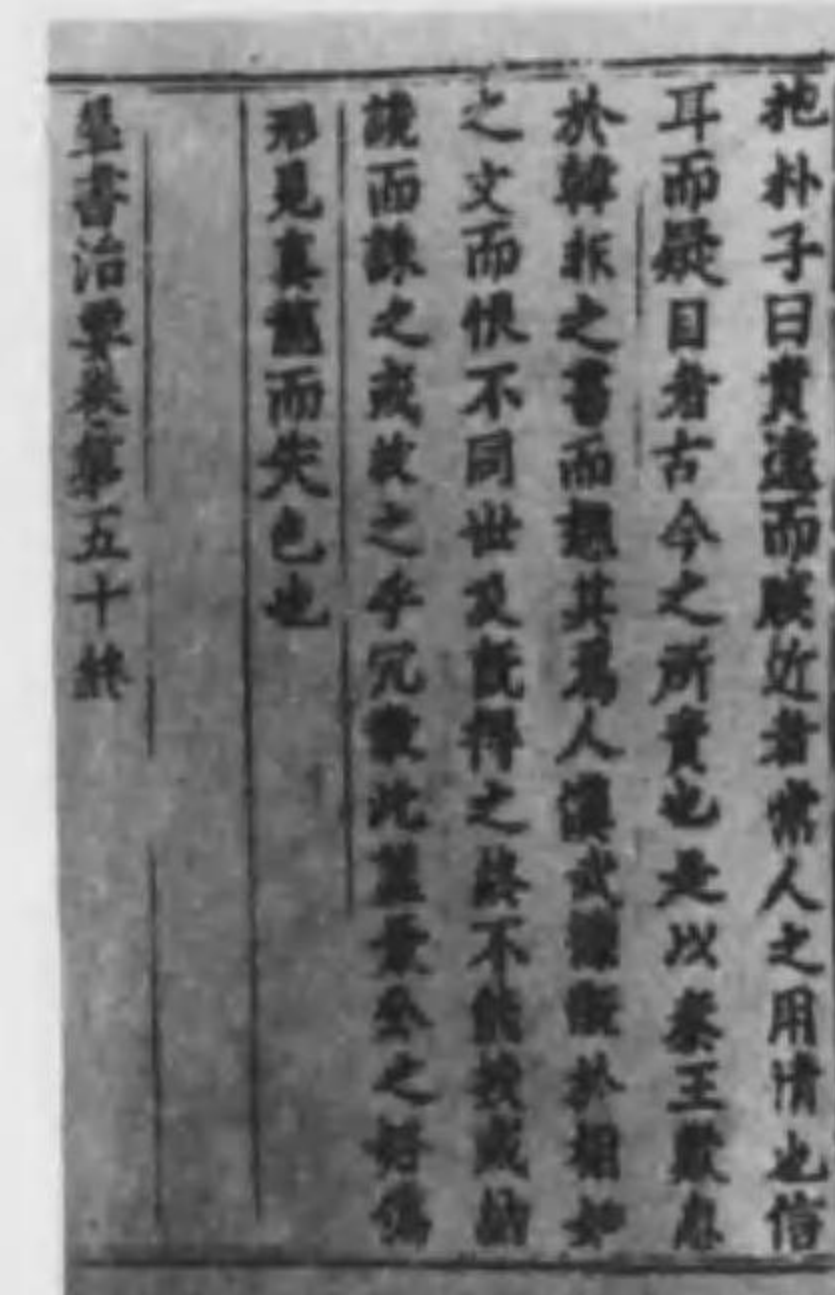 抱朴子曰貴遠而賤近者常人之用情也信
耳而疑目者古今之所貴也是以秦王歎息
於韓非之書而想其爲人漢武慷慨於相如
之文而恨不同世及既得之終不能拔或納
讒而誅之或放之乎冗散此蓋葉公之好僞
形見真龍而失色也
羣書治要卷第五十終